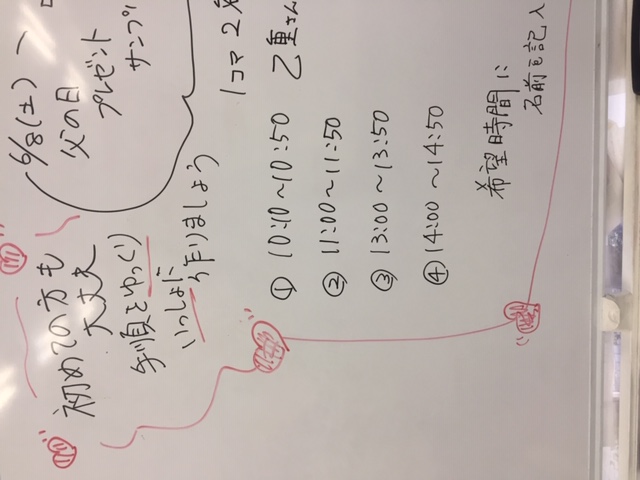 6/8(土)
父の日
プレゼント
サンプ
初めての方も
大丈夫
手順をゆっくり
いっしょに
作りましょう
1コマ 2
乙重さん
① 10:10〜10:50
② 11:00〜11:50
③ 13:00〜13:50
④ 14:00〜14:50
希望時間に
名前を記入